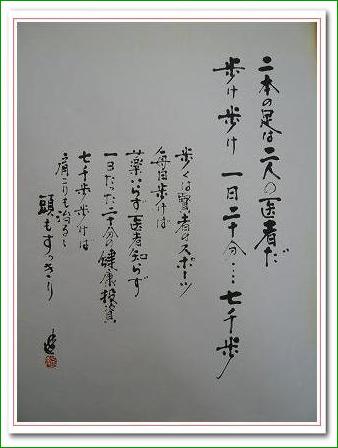 二本の足は二人の医者だ
歩け歩け 一日二十分…七千歩
歩くは賢者のスポーツ
毎日歩けば
薬いらず医者知らず
一日たった二十分の健康投資
七千歩歩けば
肩こりも治るゝ
頭もすっきり